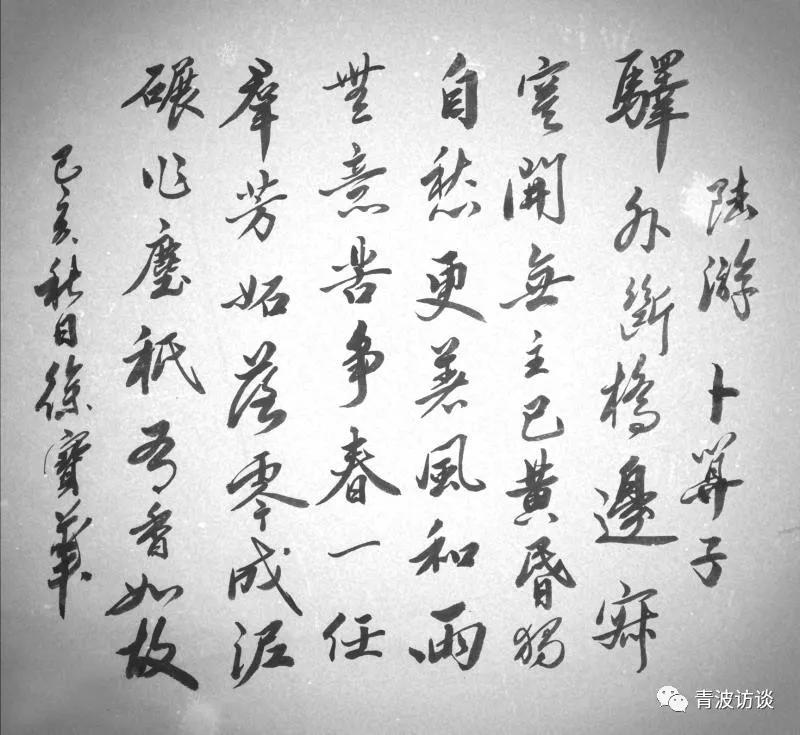 陆游 卜算子
驛外斷橋邊寂
寞開無主已黄昏獨
自愁更著風和雨
無意苦争春一任
羣芳妬落零成泥
碾作塵秖有香如故
己亥秋日徐寶華
青波访谈